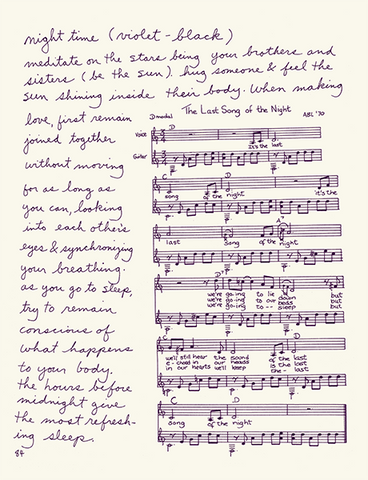 night time (violet-black)
meditate on the stars being your brothers and
sisters (be the sun). hug someone & feel the
sun shining inside their body. When making
love, first remain
joined together
without moving
for as long as
you can, looking
into each other's
eyes & synchronizing
your breathing.
as you go to sleep,
try to remain
conscious of
what happens
to your body.
the hours before
midnight give
the most refresh-
ing sleep.
84
The Last Song of the Night
D modal
ABL '70
D
Voice
Guitar
It's the last
C D
song of the night it's the
C D A7
last song of the night
D
we're go-ing to lie down but
we're go-ing to our beds but
we're go-ing to -- sleep but
C D
we'll still hear the sound of the last
e-choed in our heads is the last
in our hearts we'll keep the - last
C D
song of the night